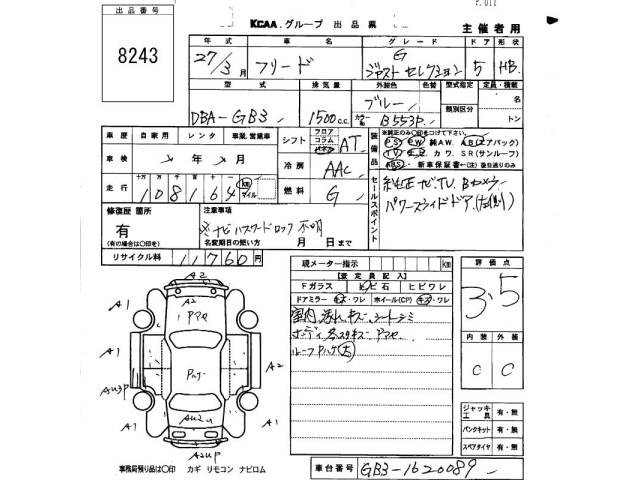 P. 011
出品番号
8243
KCAA.グループ 出品票
主催者用
年式 車名 グレード ドア 形状
27/3月 フリード G ジャストセレクション 5 HB
型式 排気量 外装色 色替 型式指定 定員・積載
DBA-GB3 1500c.c. ブルー 類別区分 名
カラーNo. B553P トン
車歴 自家用 レンタ 事業.営業車
シフト フロア コラム AT
装備品
※純正のみ○印をつけて下さい。
PS PW 純AW. AB(エアバック)
TV カワ. SR(サンルーフ)
ABS 新車保証書←(注)後日送りのみ
車検 年 月
冷房 AAC
走行 十万 万 千 百 十 一
108164 km マイル
燃料 G
セールスポイント
純正ナビ.TV. Bカメラー
パワースライドドア.(左側)
修復歴 箇所
有
(有の場合は○印を)
注意事項
※ナビパスワードロック不明
名変期日の短い方 月 日まで
リサイクル料 11760円
現メーター指示 km
【査定員記入】
Fガラス ヒビ石 ヒビワレ
ドアミラー キズ・ワレ ホイール(CP) キズ・ワレ
室内汚れ.キズ.シートシミ
ボディ各スキズ.Pアセ
ルーフPハゲ大
評価点
3.5
内装 外装
C C
ジャッキ工具 有・無
パンクキット 有・無
スペアタイヤ 有・無
A2
A1 A2 A1
Pアセ
A1 Pハゲ A2
AU3P
A1 AU2U A1
A2UP
事務局預り品は○印 カギ リモコン ナビロム
車台番号 GB3-1620089